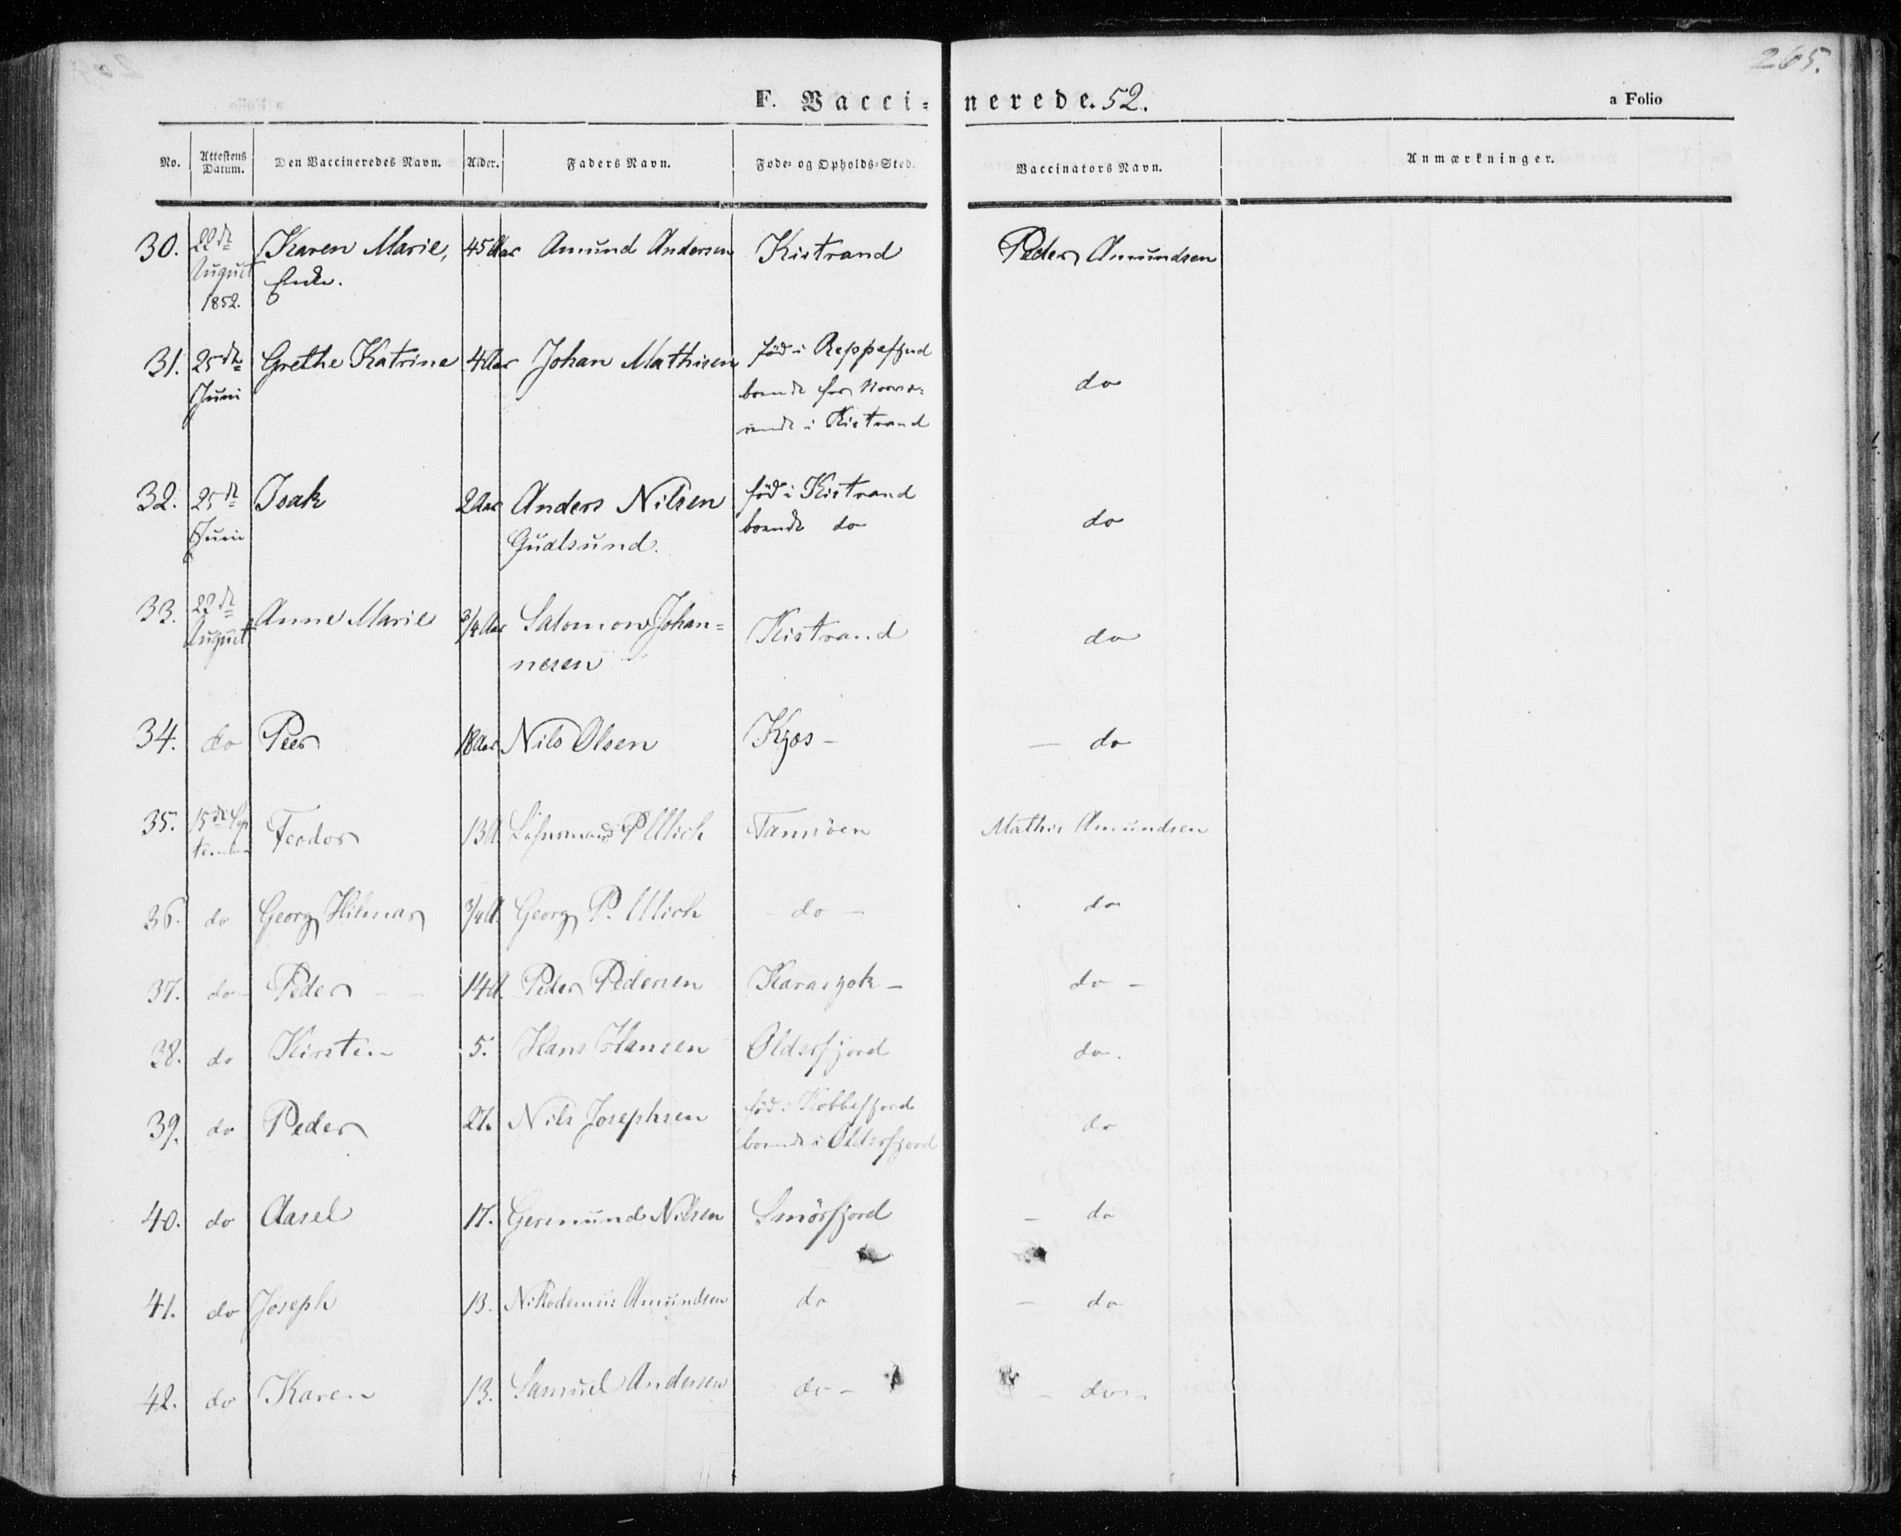 265.
F. Vaccinerede. 52. a Folio
No. Attestens Datum. Den Vaccineredes Navn. Alder. Faders Navn. Føde- og Opholds-Sted. Vaccinators Navn. Anmærkninger.
30. 22de August 1852. Karen Marie, Enke. 45 Aar Amund Andersen Kistrand Peder Amundsen
31. 25de Juni Grethe Katrine 4 Aar Johan Mathisen född i Reppefjord boende for Nærværende i Kistrand do
32. 25de Juni Isak 2 Aar Anders Nilsen Gudlsund. född i Kistrand boende do do
33. 22de August Anne Marie 3/4 Aar Salomon Johannesen Kistrand do
34. do Peer 18 Aar Nils Olsen Kjæs - - do
35. 15de September Feodor 13 A. Lehnsmand P Ulich Tamsöen Mathis Amundsen
36. do Georg Hilmar 3/4 A. Georg P. Ulich - do - do
37. do - Peder - - 14 A. Peder Pedersen Karasjok - do -
38. do Kirsten 5. Hans Hansen Oldersfjord do.
39. do Peder 21. Nils Josephsen född i Kobbefjord boende i Oldersfjord do
40. do Aasel 17. Geremund Nilsen Smörfjord - do
41. do Joseph 13. Nikodemus Amundsen do - do
42. do Karen 13. Samuel Andersen do - - do -